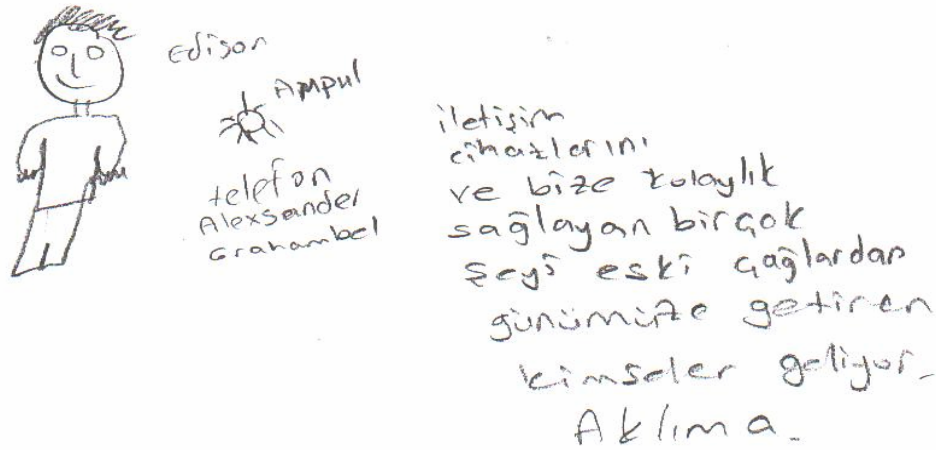 Edison
Ampul
telefon
Alexsander
Grahambel
iletişim
cihazlarını
ve bize kolaylık
sağlayan birçok
şeyi eski çağlardan
günümüze getiren
kimseler geliyor.
Aklıma.